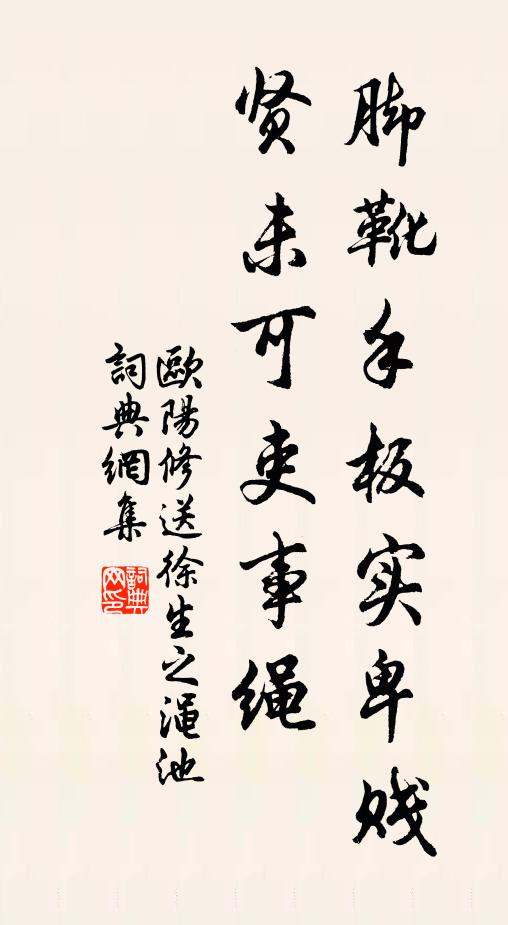 脚靴手板实卑贱
贤未可吏事绳
歐陽修送徐生之澠池
詞典網集
詞典
网印